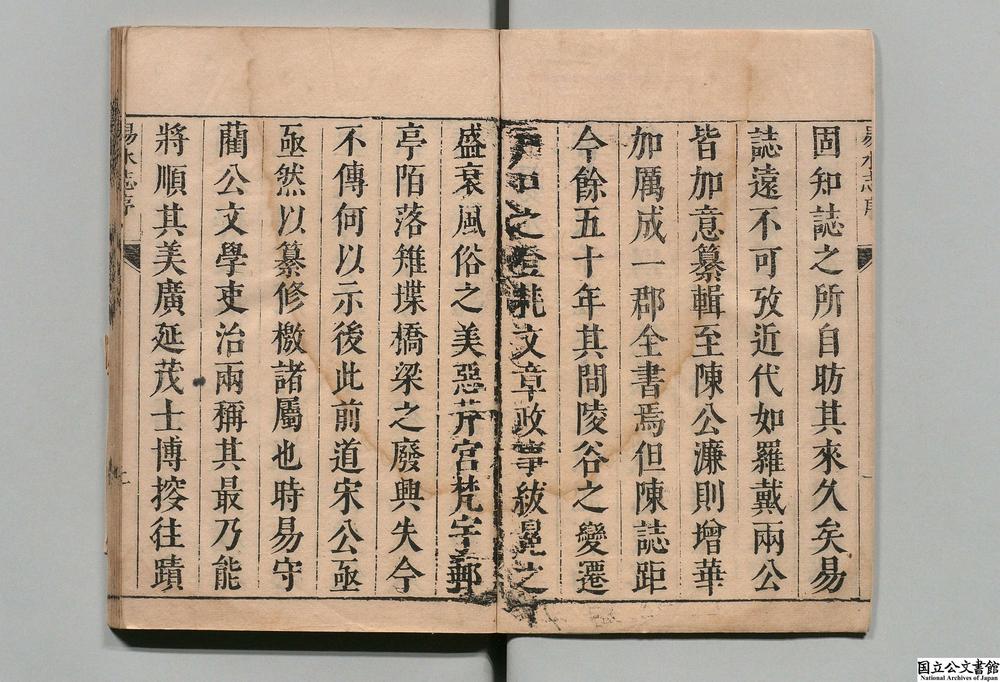 固知誌之所自昉其來久矣易
誌遠不可攷近代如羅戴兩公
皆加意纂輯至陳公濂則增華
加厲成一郡全書焉但陳誌距
今餘五十年其間陵谷之變遷
戶口之登耗文章政事紱冕之
盛衰風俗之美惡芹宮梵宇郵
亭陌落雉堞橋梁之廢興失今
不傳何以示後此前道宋公亟
亟然以纂修檄諸屬也時易守
藺公文學吏治兩稱其最乃能
將順其美廣延茂士博搜往蹟
易水志序
国立公文書館
National Archives of Japan